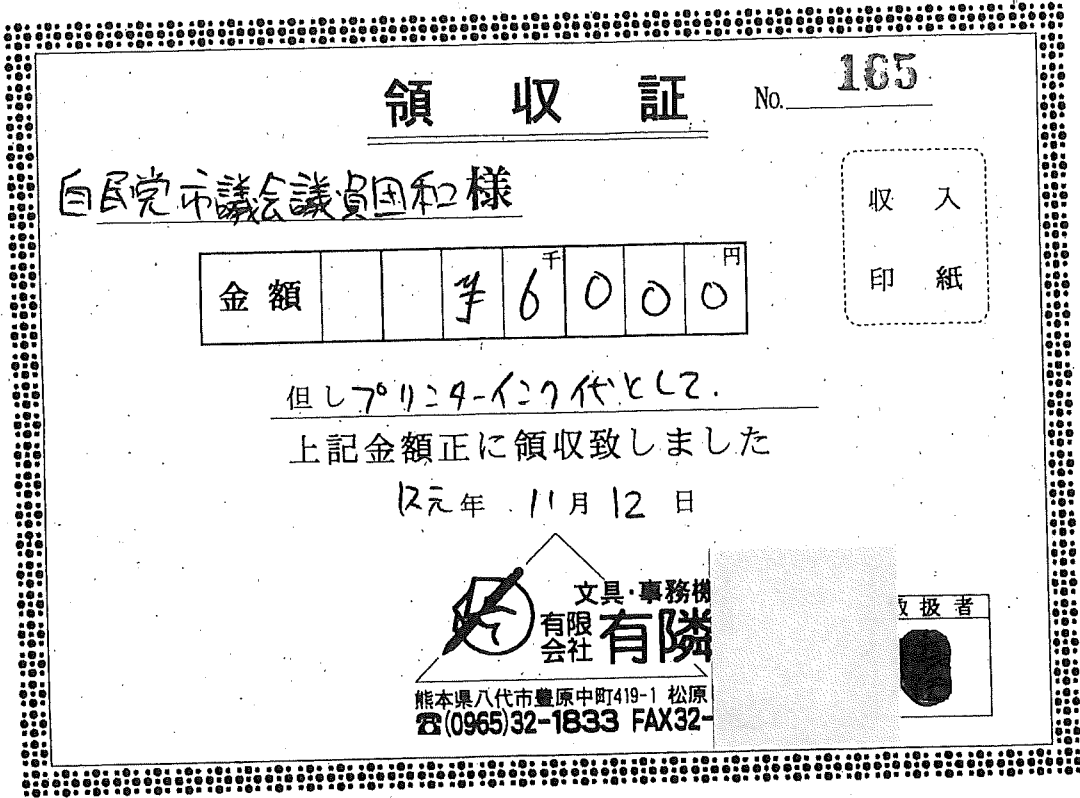 領収証
No. 165
自民党市議会議員団和様
収入
印紙
金額 ¥6000
千 円
但しプリンターインク代として.
上記金額正に領収致しました
R元年 11月12日
文具・事務機
有限会社 有隣
取扱者
熊本県八代市豊原中町419-1 松原
☎(0965)32-1833 FAX32-